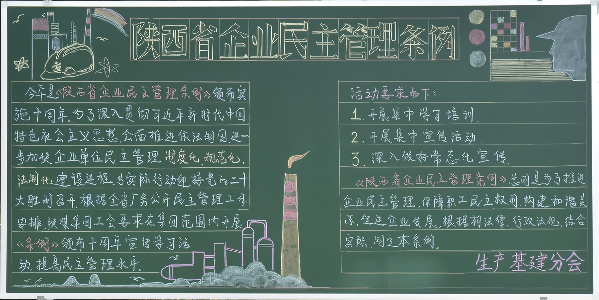 陕西省企业民主管理条例
今年是《陕西省企业民主管理条例》颁布实
施十周年,为了深入贯彻习近平新时代中国
特色社会主义思想,全面推进依法治国,进一
步加快企业单位民主管理制度化、规范化、
法制化建设进程,以实际行动迎接党的二十
大胜利召开,根据全省厂务公开民主管理工作
安排,陕煤集团工会要求在集团范围内开展
《条例》颁布十周年宣传学习活
动,提高民主管理水平.
活动要求如下:
1.开展集中学习培训.
2.开展集中宣传活动
3.深入做好常态化宣传
《陕西省企业民主管理条例》总则是为了推进
企业民主管理,保障职工民主权利,构建和谐关
系,促进企业发展,根据宪法律、行政法规,结合
实际,制定本条例.
生产基建分会